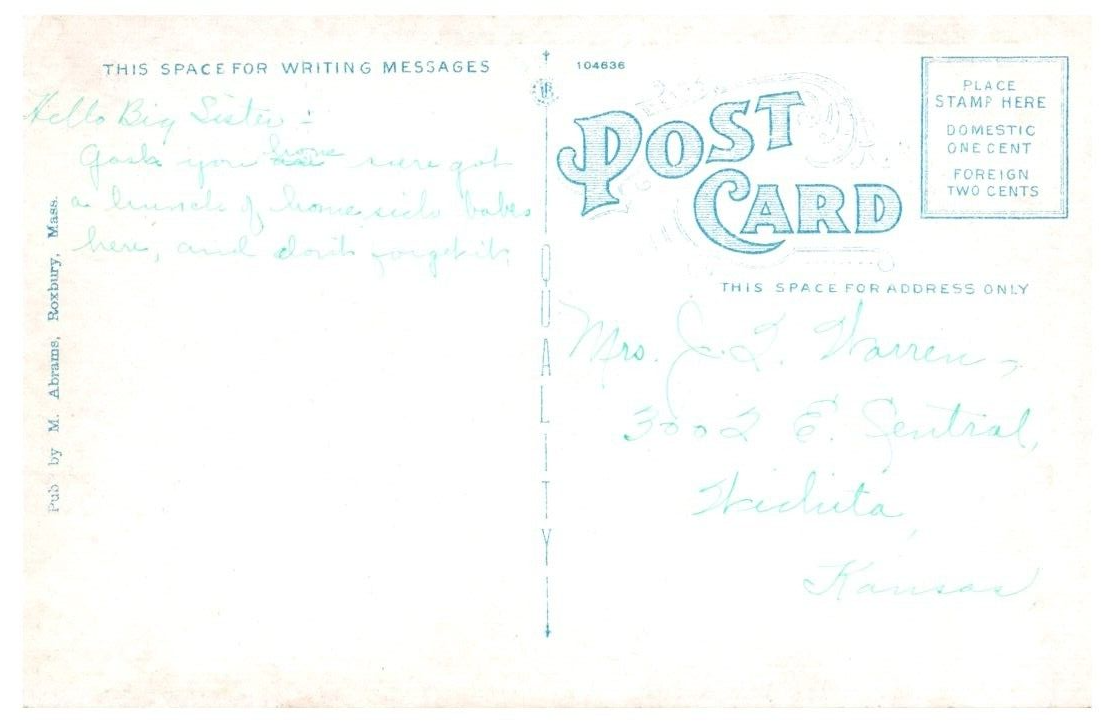 THIS SPACE FOR WRITING MESSAGES
Hello Big Sister :
Gosh you have sure got
a bunch of home sick babes
here, and don't forget it,
Pub by M. Abrams, Roxbury, Mass.
QUALITY
104636
POST
CARD
PLACE
STAMP HERE
DOMESTIC
ONE CENT
FOREIGN
TWO CENTS
THIS SPACE FOR ADDRESS ONLY
Mrs. J. L. Warren,
3002 E. Sentral,
Wichita,
Kansas